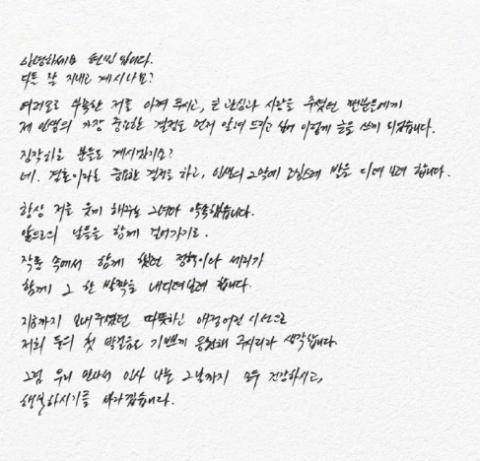 안녕하세요 현빈 입니다.
다들 잘 지내고 계시나요?
여러모로 부족한 저를 아껴 주시고, 큰 관심과 사랑을 주셨던 팬분들에게
제 인생의 가장 중요한 결정을 먼저 알려 드리고 싶어 이렇게 글을 쓰게 되었습니다.
짐작하실 분들도 계시겠지요?
네. 결혼이라는 중요한 결정을 하고, 인생의 2막에 조심스레 발을 디뎌 보려 합니다.
항상 저를 웃게 해주는 그녀와 약속했습니다.
앞으로의 날들을 함께 걸어가기로.
작품 속에서 함께 했던 정혁이와 세리가
함께 그 한 발짝을 내디뎌보려 합니다.
지금까지 보내주셨던 따뜻하고 애정어린 시선으로
저희 둘의 첫 발걸음도 기쁘게 응원해 주시리라 생각합니다.
그럼 우리 만나서 인사 나눌 그날까지 모두 건강하시고,
행복하시기를 바라겠습니다.